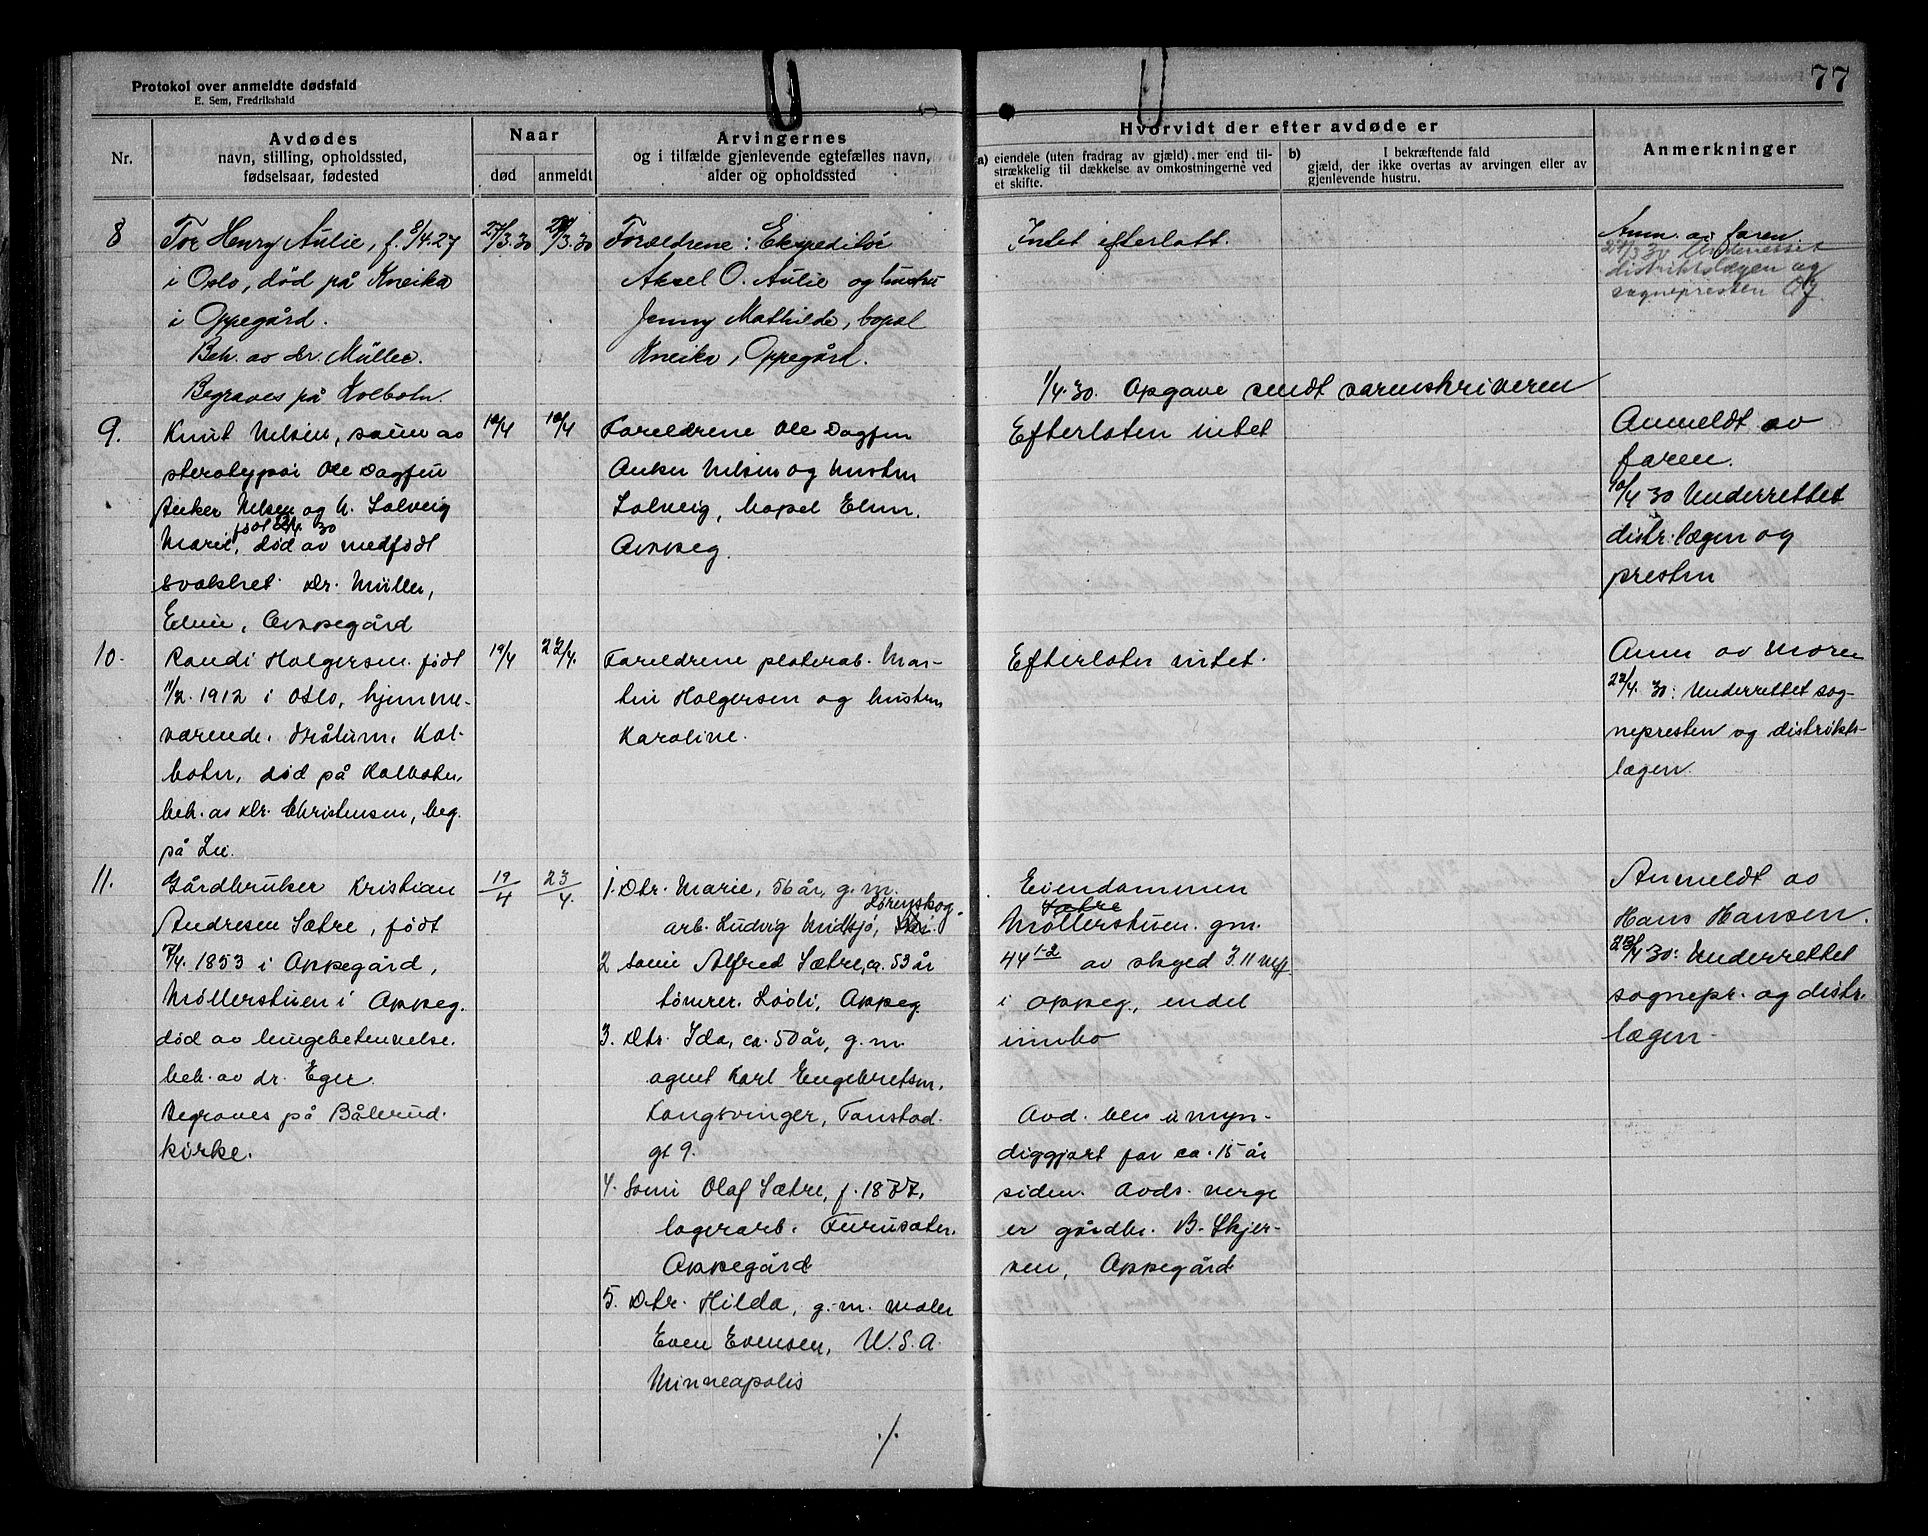 Protokol over anmeldte dødsfald
E. Sem, Fredrikshald
77
Nr.
Avdødes
navn, stilling, opholdssted,
fødselsaar, fødested
Naar
død
anmeldt
Arvingernes
og i tilfælde gjenlevende egtefælles navn,
alder og opholdssted
Hvorvidt der efter avdøde er
a) eiendele (uten fradrag av gjæld) mer end til-
strækkelig til dækkelse av omkostningerne ved
et skifte.
b) I bekræftende fald
gjæld, der ikke overtas av arvingen eller av
gjenlevende hustru.
Anmerkninger
8
Tor Henry Aulie, f. 8/4.27
i Oslo, død på Kneika
i Oppegård.
Beh. av dr. Müller.
Begraves på Kolbotn.
27/3.30
28/3.30
Forældrene: Ekspeditør
Aksel O. Aulie og hustru
Jenny Mathilde, bopal
Kneika, Oppegård.
Intet efterlatt.
1/4.30. Opgave sendt sorenskriveren
Anm. av faren
distriktslægen og
sognepresten
9.
Knut Nilsen, sønn av
sterotypør Ole Dagfin
Anker Nilsen og h. Solveig
Marie, født 30
død av medfødt
svakhet. Dr. Müller,
Elvin, Oppegård
10/4
10/4
Foreldrene Ole Dagfin
Anker Nilsen og hustru
Solveig, bopel Elvin.
Oppeg.
Efterlaten intet
Anmeldt av
faren.
10/4 30 Underrettet
distr.lægen og
presten
10.
Randi Holgersen født
1912 i Oslo, hjemme-
værende. Kol-
botn, død på Kolbotn,
beh. av dr. Christensen, beg.
på
19/4
22/4.
Foreldrene platerab. Mar-
tin Holgersen og hustru
Karoline.
Efterlater intet.
Anm av moren
22/4. 30: Underrettet sog-
nepresten og distrikts-
lægen.
11.
Gårdbruker Kristian
Andresen Sætre, født
7/4. 1853 i Oppegård,
Møllerstuen i Oppeg.
død av lungebetennelse.
beh. av dr. Eger.
Begraves på Bålerud
kirke.
19/4
23/4.
1. Dtr. Marie, 56 år, g.m.
Lørenskog.
arb. Ludvig Midsjø,
2 Sønn Alfred Sætre, ca. 53 år
tømrer. Lødi, Oppeg.
3. Dtr. Ida, ca. 50 år, g.m.
agent Karl Engebretsen,
Kongsvinger, Tanstad
gt 9.
4. Sønn Olaf Sætre, f. 1877,
lagerarb. Furusæter.
Oppegård
5. Dtr. Hilda, g.m. maler
Even Evensen, U.S.A.
Minneapolis
./.
Eiendommen
Sætre
Møllerstuen. gm.
44 1-2 av skyld 3.11 mk
i Oppeg., endel
innbo
Avd. blev umyn-
diggjort for ca. 15 år
siden. Avds. verge
er gårdbr. B. Skjer-
ven, Oppegård
Anmeldt av
Hans Hansen.
23/4 30: Underrettet
sognepr. og distr.
lægen.